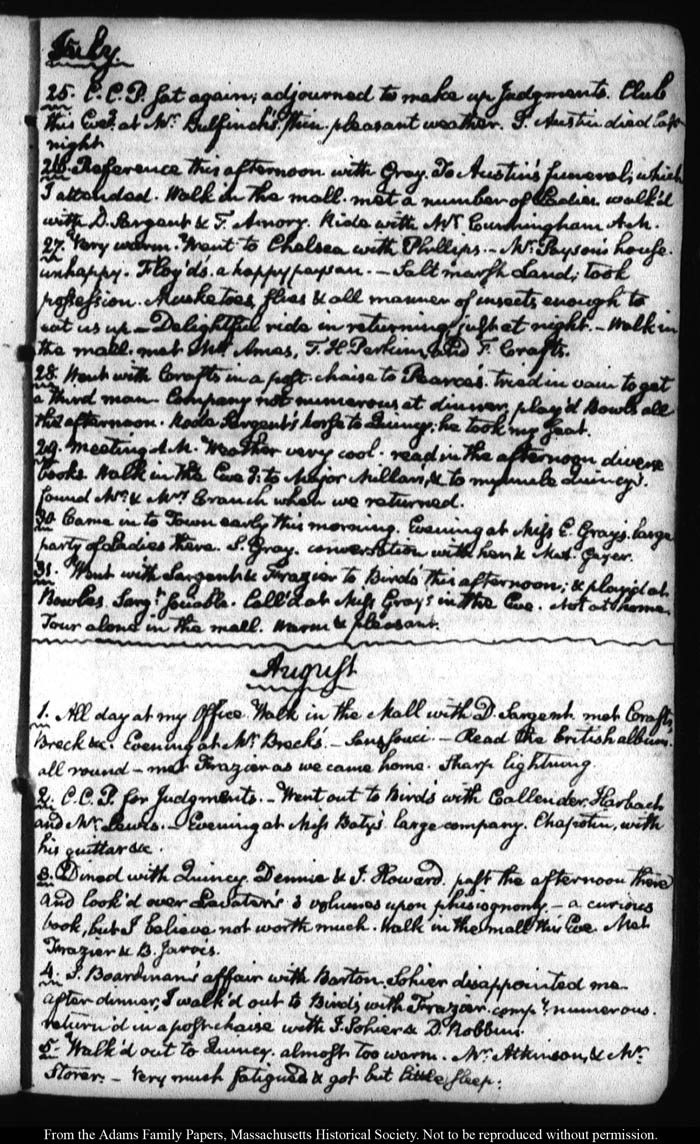 July.
25. C.C.P. sat again; adjourned to make up Judgments. Club
this Eve. at Mr. Bulfinch's, thin. pleasant weather. J. Austin died last
night
26. Reference this afternoon with Gray. To Austin's funeral, which
I attended. Walk in the mall. met a number of Ladies walk'd
with D. Sargent & T. Amory. Ride with Mr. Cunningham A.M.
27. Very warm. Went to Chelsea with Phillips. – Mr. Payson's house.
unhappy. Floyd's. a happy paysan. – Salt marsh Land; took
possession. Musketoes, flies & all manner of insects enough to
eat us up – Delightful ride in returning just at night. – Walk in
the mall. met Ames, T. H. Perkins, and F. Crafts.
28. Went with Crafts in a post-chaise to Pearce's. tried in vain to get
a third man. Company not numerous at dinner, play'd Bowls all
this afternoon. Rode Sargent's horse to Quincy; he took my seat.
29. Meeting A.M. Weather very cool. read in the afternoon divers
books. Walk in the Eve to Major Millar's, & to my uncle Quincy's.
found Mr. & Mrs. Cranch when we returned.
30. Came in to Town early this morning. Evening at Miss E. Gray's. large
party of Ladies there. S. Gray. conversation with her &
31. Went with Sargent & Frazier to Bird's this afternoon; & play'd at
Bowles. Sargt. sociable. Call'd at Miss Gray's in the Eve. Not at home.
Tour alone in the mall. Warm & pleasant.
August
1. All day at my Office. Walk in the Mall with D. Sargent. met Crafts,
Breck &c. Evening at Mr. Breck's. – Sans souci – Read the British album.
all round – met Frazier as we came home. Sharp lightning
2. C.C.P. for Judgments. – Went out to Bird's with Callender, Harbach
and Mr. Lewis. – Evening at Miss Baty's. large company. Chapotin, with
his guittar &c.
3. Dined with Quincy. Dennie & J. Howard. past the afternoon there
and look'd over Lavater's 3 volumes upon phisiognomy – a curious
book, but I believe not worth much. Walk in the mall this Eve. Met
Frazier & B. Jarvis.
4. J. Boardman's affair with Barton. Sohier disappointed me.
after dinner, I walk'd out to Bird's with Frazier. compy. numerous.
return'd in a post-chaise with J. Sohier & D. Robbins.
5. Walk'd out to Quincy. almost too warm. Mr. Atkinson, & Mr.
Storer. – Very much fatigued & got but little sleep.
From the Adams Family Papers, Massachusetts Historical Society. Not to be reproduced without permission.